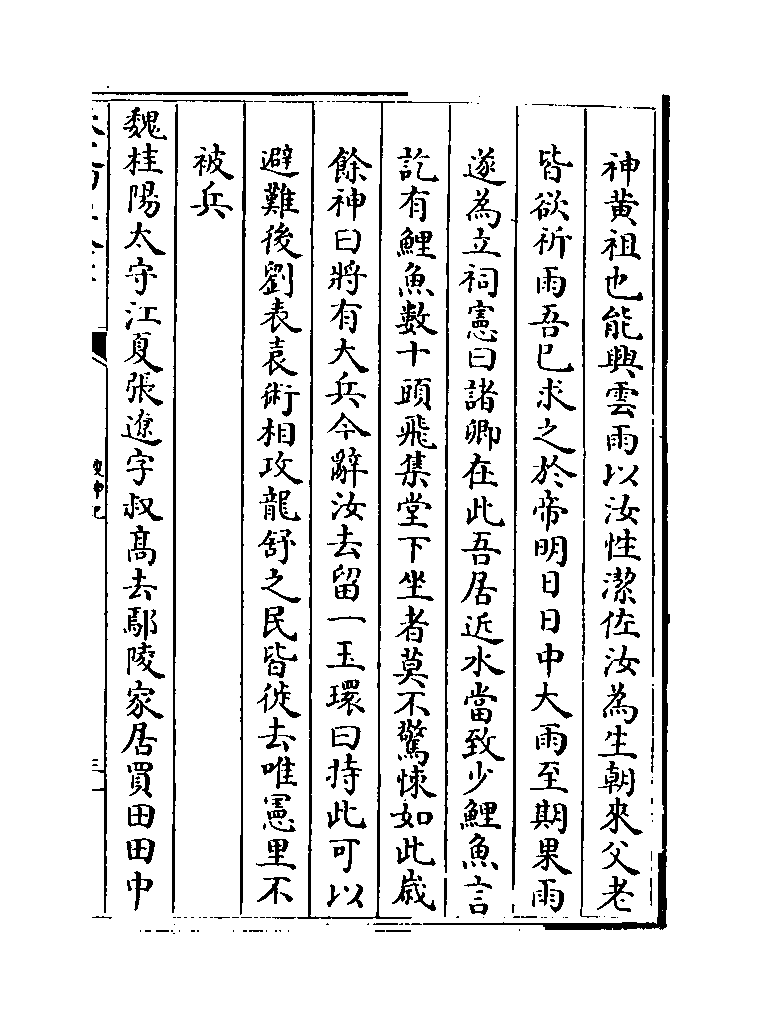 神黄祖也能興雲雨以汝性潔佐汝為生朝來父老
皆欲祈雨吾已求之於帝明日日中大雨至期果雨
遂為立祠憲曰諸卿在此吾居近水當致少鯉魚言
訖有鯉魚數十頭飛集堂下坐者莫不驚悚如此歳
餘神曰將有大兵今辭汝去留一玉環曰持此可以
避難後劉表袁術相攻龍舒之民皆徙去唯憲里不
被兵
魏桂陽太守江夏張遼字叔髙去鄢陵家居買田田中
搜神記